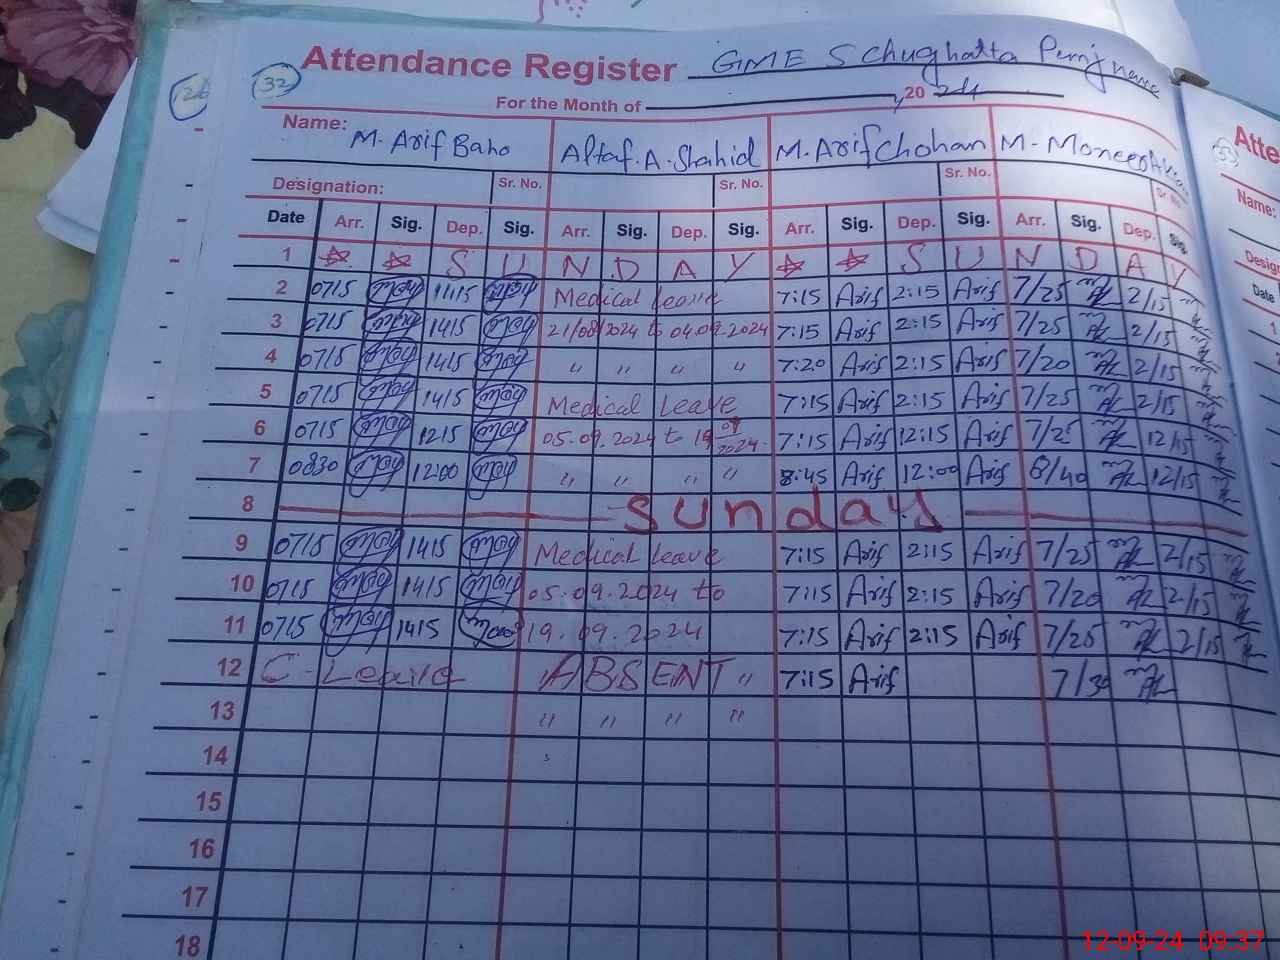 Attendance Register GME S Chughatta
32
For the Month of , 20 24
Name: M. Arif Baho Altaf. A. Shahid M. Arif Chohan M. Moneer
Designation: Sr. No. Sr. No. Sr. No. Sr. No.
Date Arr. Sig. Dep. Sig. Arr. Sig. Dep. Sig. Arr. Sig. Dep. Sig. Arr. Sig. Dep. Sig.
1 S U N D A Y S U N D A Y
2 0715 1415 Medical leave 7:15 Arif 2:15 Arif 7/25 2/15
3 0715 1415 21/08/2024 to 04.09.2024 7:15 Arif 2:15 Arif 7/25 2/15
4 0715 1415 " " " " 7:20 Arif 2:15 Arif 7/20 2/15
5 0715 1415 Medical Leave 7:15 Arif 2:15 Arif 7/25 2/15
6 0715 1215 05.09.2024 to 19 09 2024 7:15 Arif 12:15 Arif 7/25 12/15
7 0830 1200 " " " " 8:45 Arif 12:00 Arif 8/40 12/15
8 Sunday
9 0715 1415 Medical leave 7:15 Arif 2:15 Arif 7/25 2/15
10 0715 1415 05.09.2024 to 7:15 Arif 2:15 Arif 7/20 2/15
11 0715 1415 19.09.2024 7:15 Arif 2:15 Arif 7/25 2/15
12 C-Leave " ABSENT " 7:15 Arif 7/30
13 " " " "
14
15
16
17
18
33
Atte
Name:
Desig
Date
12-09-24 09.37